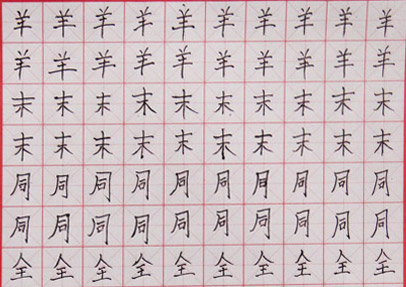 羊羊羊羊羊羊羊羊羊羊
羊羊羊羊羊羊羊羊羊羊
末末末末末末末末末末
末末末末末末末末末末
同同同同同同同同同同
同同同同同同同同同同
全全全全全全全全全全